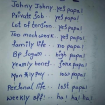 Johny Johny yes papa!
Private Job yes papa!
Lot of tension yes papa!
Too much work yes papa!
Family life no papa!
BP Sugar high papa!
Yearly bonus Joke papa!
Monthly pay low papa!
Personal life lost papa!
Weekly off ha! ha! ha!